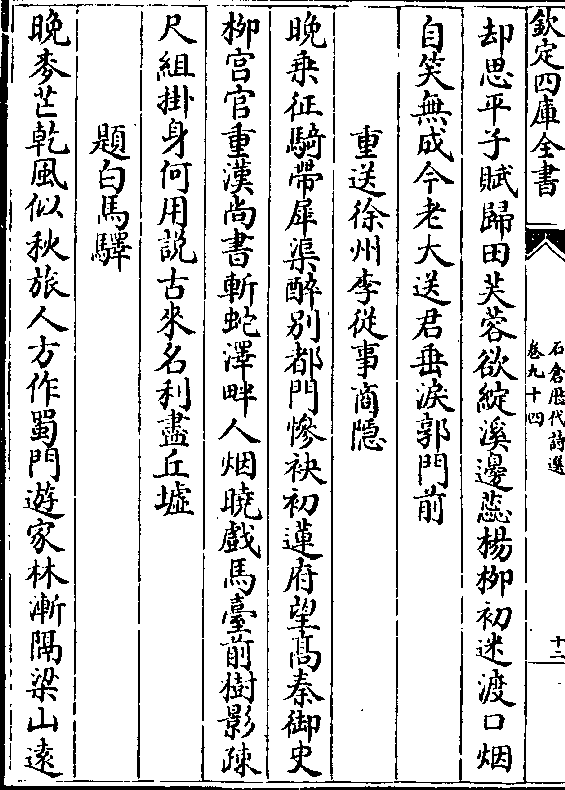 欽定四庫全書
石倉歴代詩選
卷九十四
十二
却思平子賦歸田芙蓉欲綻溪邊蕊楊栁初迷渡口烟
自笑無成今老大送君垂淚郭門前
重送徐州李從事商隠
晚乗征騎帶犀渠醉别都門慘袂初蓮府望髙秦御史
栁宫官重漢尚書斬蛇澤畔人烟曉戲馬臺前樹影疎
尺組掛身何用説古來名利盡丘墟
題白馬驛
晚麥芒乾風似秋旅人方作蜀門遊家林漸隔梁山遠